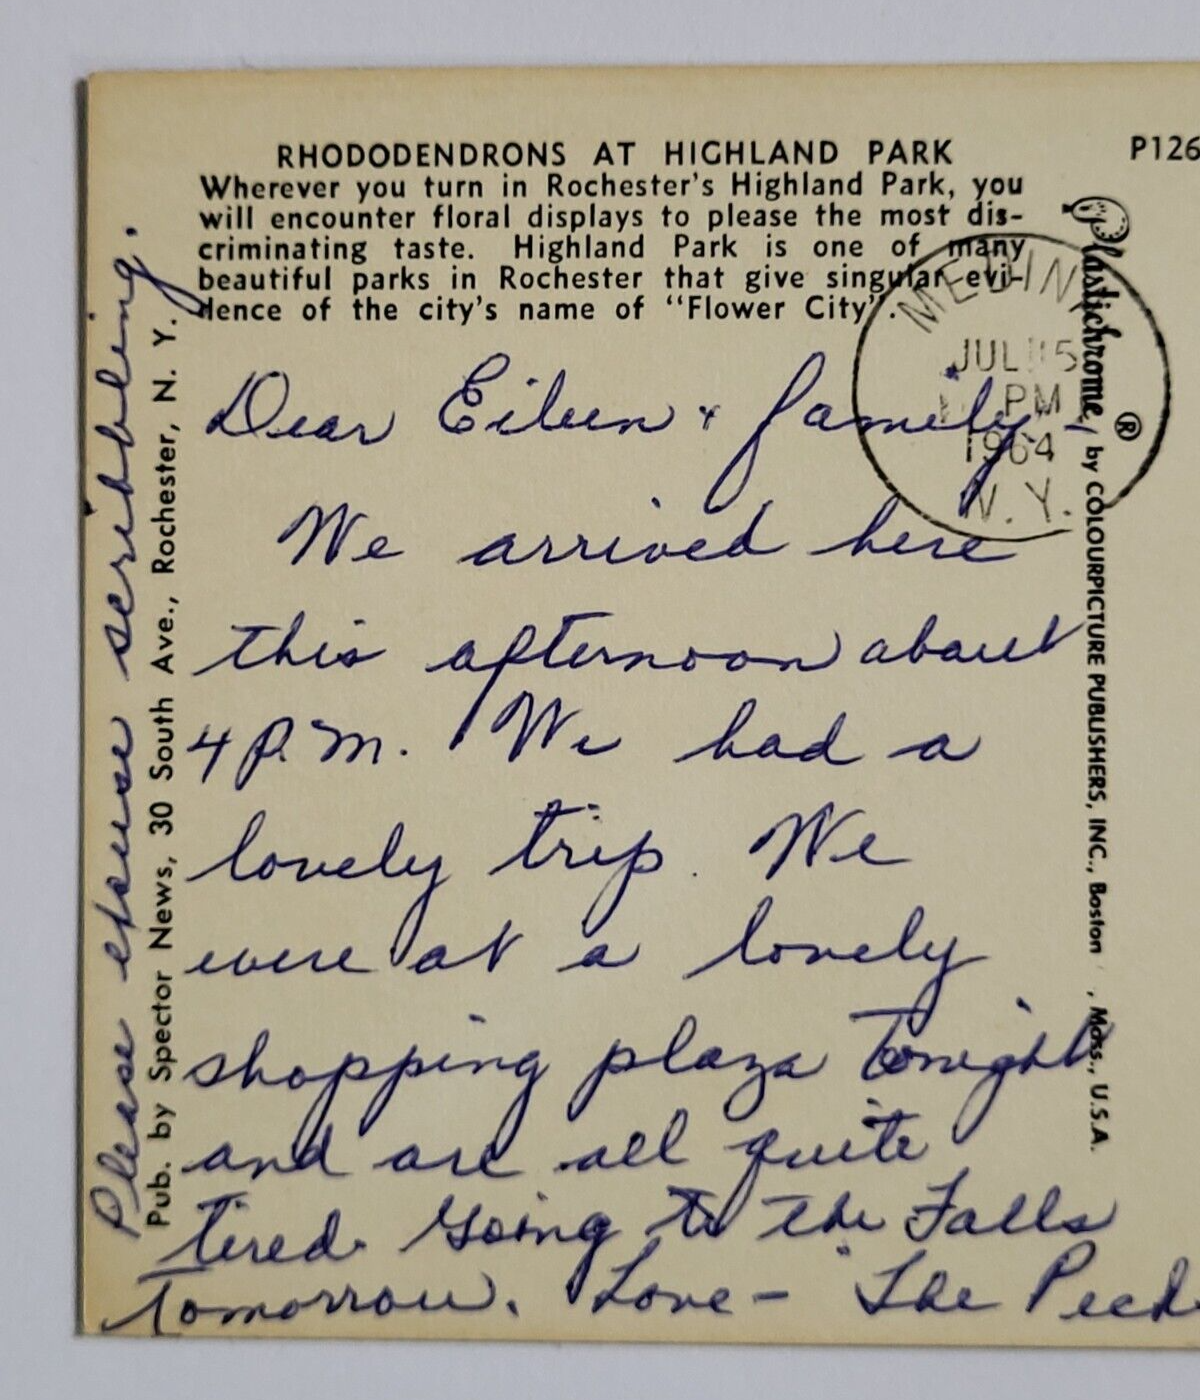 RHODODENDRONS AT HIGHLAND PARK
Wherever you turn in Rochester's Highland Park, you
will encounter floral displays to please the most dis-
criminating taste. Highland Park is one of many
beautiful parks in Rochester that give singular evi-
dence of the city's name of "Flower City".
P126
MEDIN
JUL 15
PM
1964
N.Y.
Dear Eileen & family,
We arrived here
this afternoon about
4 P.M. We had a
lovely trip. We
were at a lovely
shopping plaza tonight
and are all quite
tired. Going to the Falls
Tomorrow. Love - The Peck
Please excuse scribbling.
Pub. by Spector News, 30 South Ave., Rochester, N. Y.
Plastichrome ® by COLOURPICTURE PUBLISHERS, INC., Boston , Mass., U.S.A.